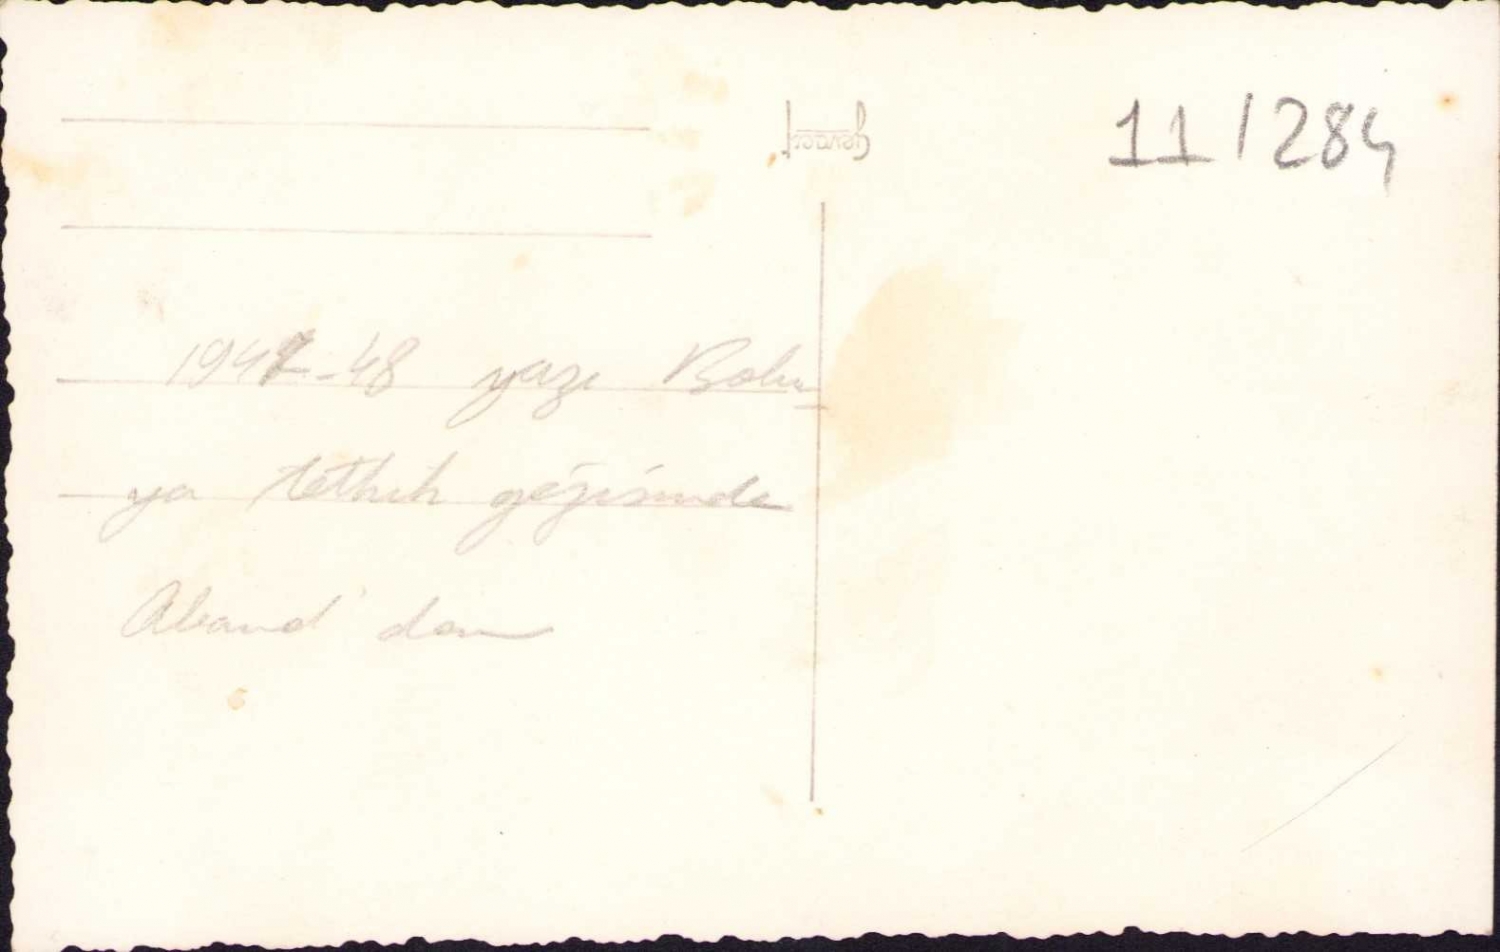 11/284
1947-48 yazı Bolu
ya tetkik gezisinde
Aband' dan